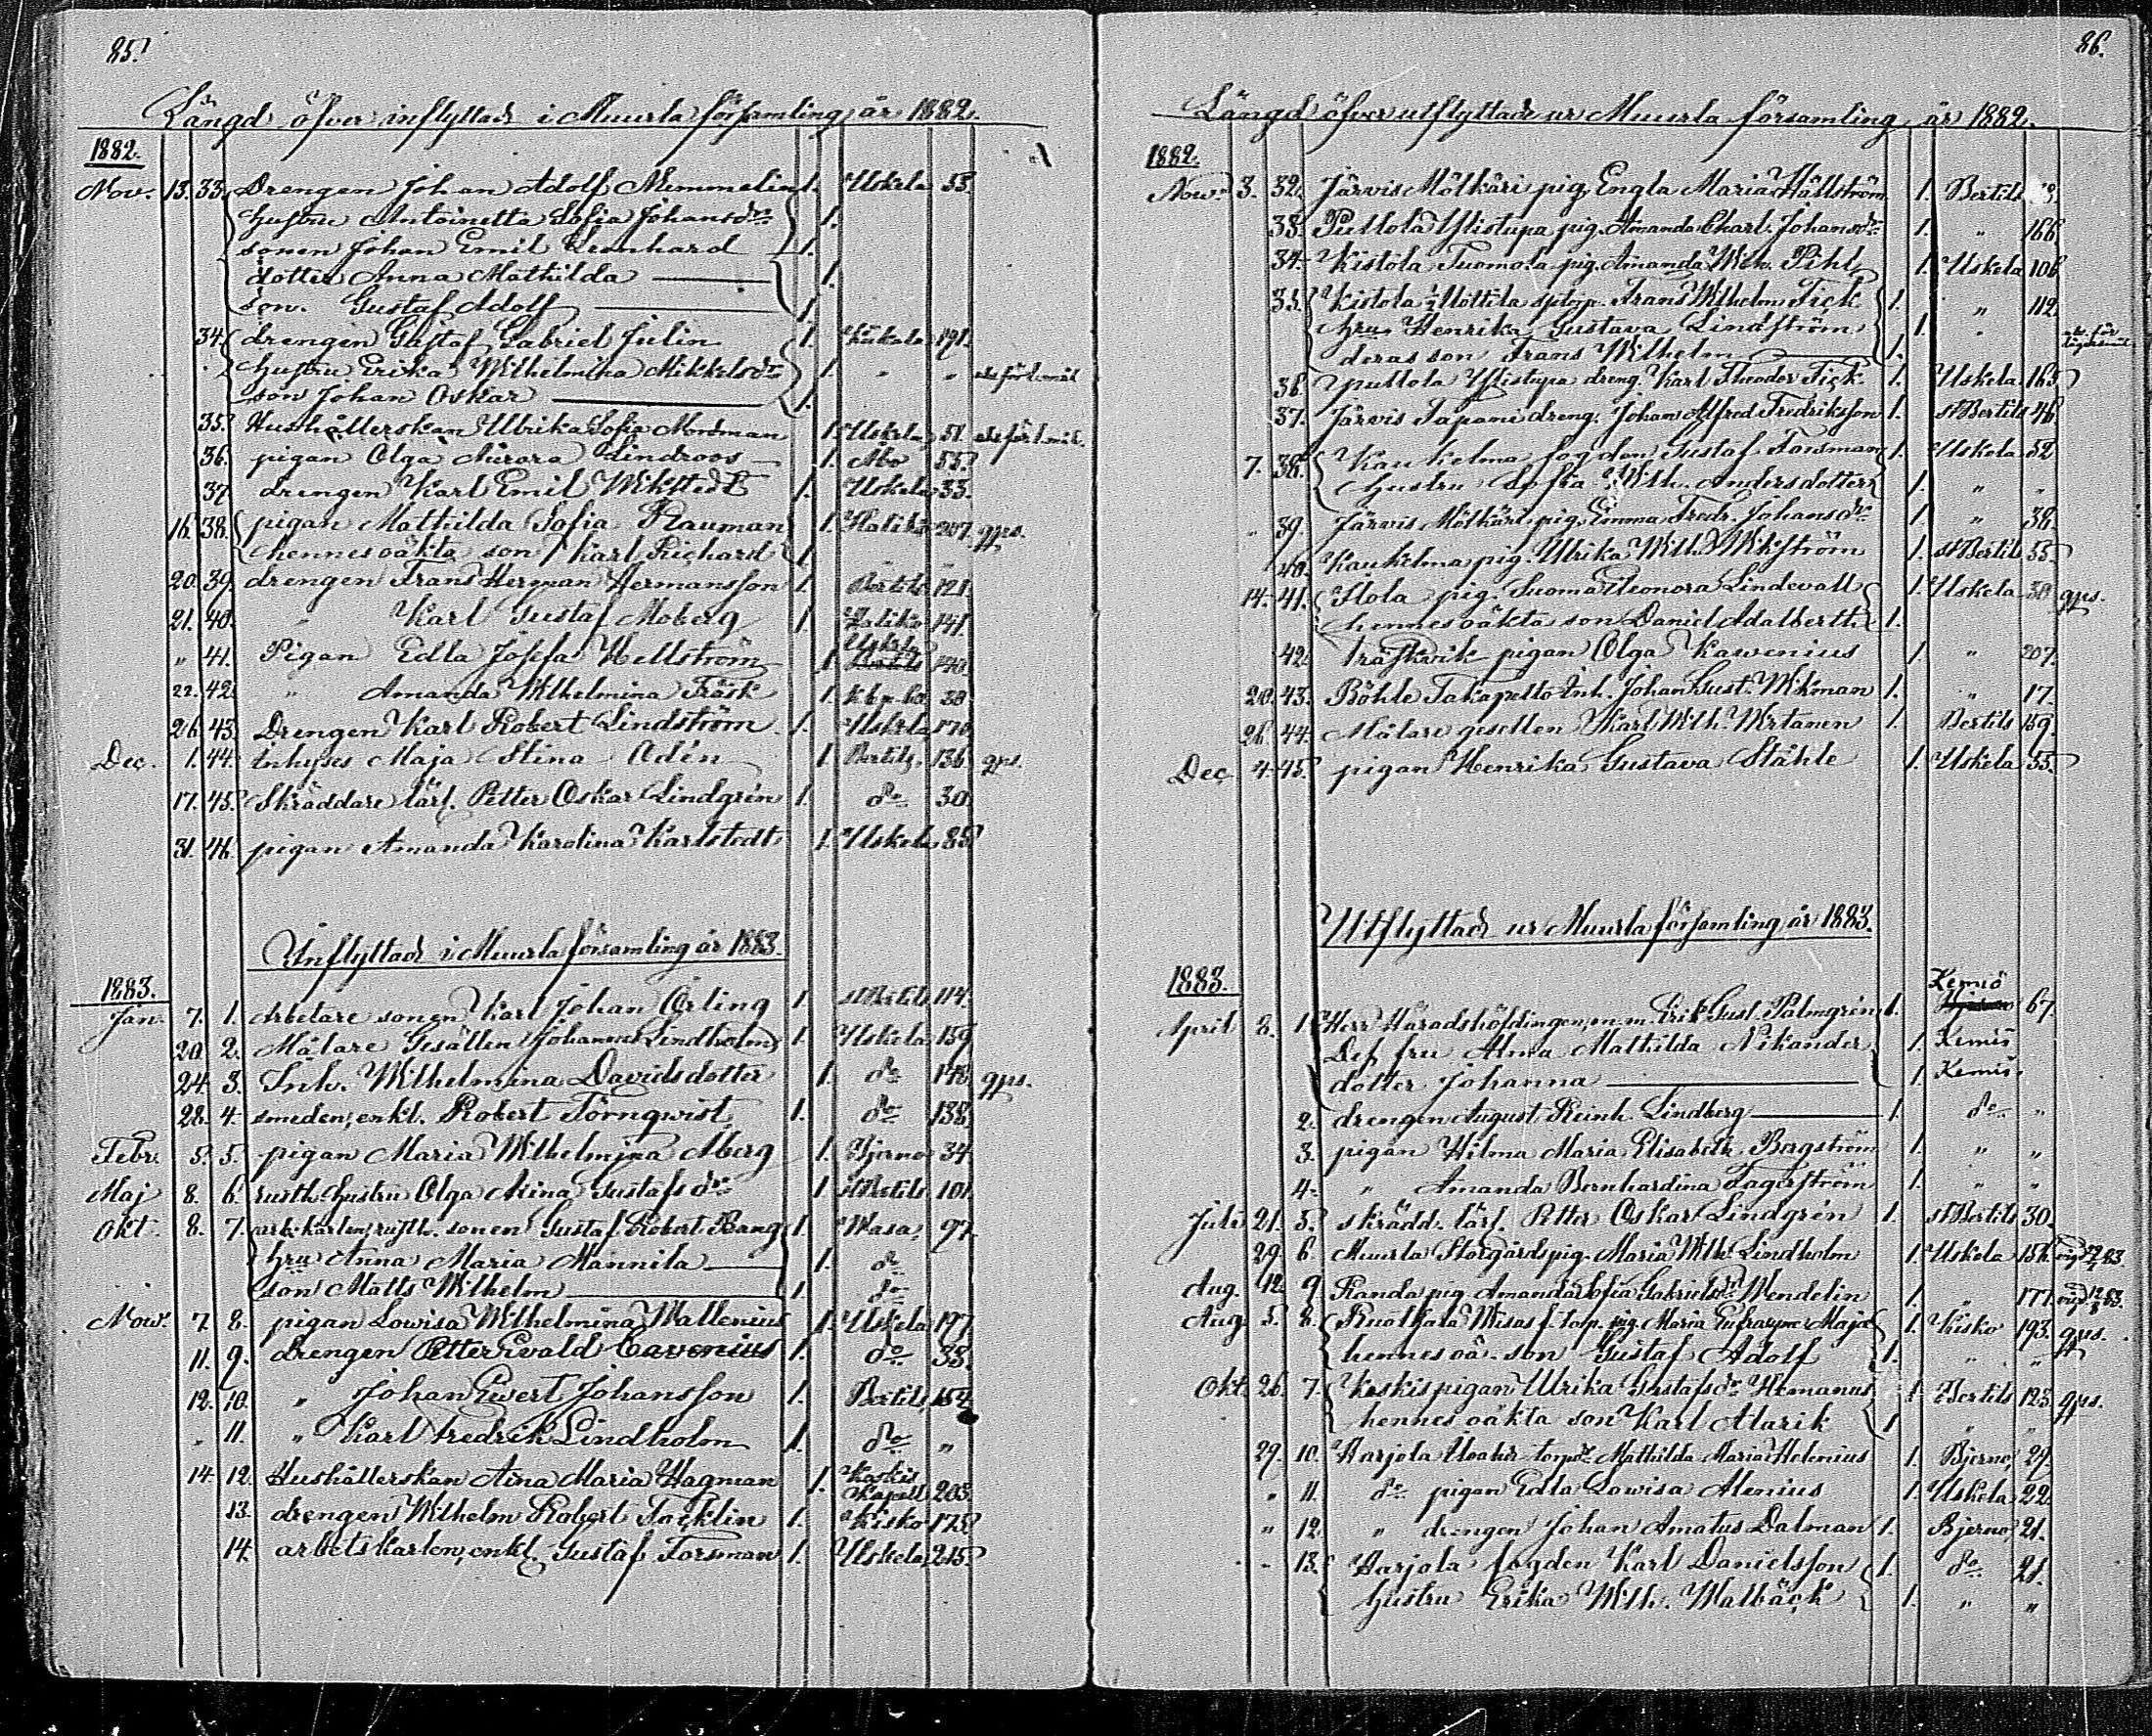 85.
Längd öfver inflyttade i Muurla församling år 1882.
1882.
Nov. 13. 33. Drengen Johan Adolf Memmelin 1. Uskela 53.
hustru Antoinetta Sofia Johansdr 1.
sonen Johan Emil Leonhard 1.
dotter Anna Mathilda 1.
son. Gustaf Adolf 1.
34. drengen Gustaf Gabriel Julin 1. 191.
hustru Erika Wilhelmina Mikkelsdr 1. " "
son Johan Oskar 1.
35. Hushållerskan Ulrika Sofia Nordman 1. Uskela 51.
36. pigan Olga Aurora Lindroos 1. Åbo 55.
37. drengen Karl Emil Wikstedt 1. Uskela 33.
16. 38. pigan Mathilda Sofia Rauman 1. Halikko 207. gps.
hennes oäkta son Karl Richard 1.
20. 39. drengen Frans Herman Hermansson 1. Bertils 121.
21. 40. " Karl Gustaf Moberg 1. Haliko 141.
" 41. Pigan Edla Josefa Hellström 1. Uskela 140.
22. 42. " Amanda Wilhelmina Träsk 1. 30.
26. 43. Drengen Karl Robert Lindström 1. Uskela 170.
Dec. 1. 44. Inhyses Maja Stina Odén 1 Bertils 136. gps.
17. 45. Skräddare lärl. Petter Oskar Lindgrén 1. do 30.
31. 46. pigan Amanda Karolina Karlstedt 1. Uskela 85.
Inflyttade i Muurla församling år 1883.
1883.
Jan. 7. 1. Arbetare sonen Karl Johan Örling 1. St Bertils 114.
20. 2. Målare Gesällen Johannes Lindholm 1. Uskela 159.
24. 3. Inh. Wilhelmina Davidsdotter 1. do 148. gps.
28. 4. smeden, enkl. Robert Törnqwist 1. do 138.
Febr. 5. 5. pigan Maria Wilhelmina Åberg 1. Bjerno 34.
Maj 8. 6. rusth. hustru Olga Aina Gustafsdr 1. St Bertils 101.
Okt. 8. 7. arb. karlen, rusth. sonen Gustaf Robert Rang 1. Wasa, 97.
hru Anna Maria Mannila 1. do
son Matts Wilhelm 1. do
Nov. 7. 8. pigan Lowisa Wilhelmina Wallenius 1. Uskela 197.
11. 9. drengen Petter Evald Cavenius 1. do 38.
12. 10. " Johan Ewert Johansson 1. Bertils 154.
" 11. " Karl Fredrik Lindholm 1. do "
14. 12. Hushållerskan Aina Maria Hagman 1. Koskis Kapell 203.
13. drengen Wilhelm Robert Tacklin 1. Kisko 175.
14. arbetskarlen, enkl. Gustaf Forsman 1. Uskela 215.
86.
Längd öfver utflyttade ur Muurla församling år 1882.
1882.
Nov. 3. 32. Järvis Mölkäri pig. Engla Maria Hällström 1. Bertils
33. Puttola Ylistupa pig. Amanda Charl. Johansdr 1. " 166.
34. Kistola Tuomola pig. Amanda Wilh. Pihl 1. Uskela 106.
35. Kistola Mottila Frans Wilhelm Fick 1. " 112.
hru Henrika Gustava Lindström 1. "
deras son Frans Wilhelm 1.
36. Puttola Ylistupa dreng. Karl Theodor Fick 1. Uskela 165.
37. Järvis Tapani dreng. Johan Alfred Fredriksson 1. St Bertils 46.
7. 38. Kaukelma fogden Gustaf Forsman 1. Uskela 52
hustru Sofia Wilh. Andersdotter 1. " "
" 39. Järvis Mölkäri pig. Emma Fredr. Johansdr 1. " 38.
40. Kaukelma pig. Ulrika Wilh. Wikström 1. St Bertils 55.
14. 41. pig. Suoma Eleonora Lindevall 1. Uskela 30. gps.
hennes oäkta son Daniel Adalberth 1.
42. Träskvik pigan Olga Kawenius 1. " 207.
20. 43. Böhle Takapelto Inh. Johan Gust. Wikman 1. " 17.
26. 44. Målare gesellen Karl Wilh. Wirtanen 1. Bertils 159.
Dec. 4. 45. pigan Henrika Gustava Ståhle 1. Uskela 55.
Utflyttade ur Muurla församling år 1883.
1883.
April 2. 1. Herr Häradshöfdingen, m. m. Erik Gust. Palmgrén 1. Kemiö 67.
Dess fru Alma Mathilda Nikander 1. Kemiö
dotter Johanna 1. Kemiö.
2. drengen August Reinh. Lindberg 1. do "
3. pigan Hilma Maria Elisabeth Bergström 1. " "
4. " Amanda Bernhardina Fagerström 1. " "
Juli 21. 5. skrädd. lärl. Petter Oskar Lindgrén 1. St Bertils 30.
29. 6. Muurla Storgård pig. Maria Wilh. Lindholm 1. Uskela 156.
Aug. 12. 9. Randa pig. Amanda Sofia Gabrielsdr Wendelin 1. " 177.
Aug. 5. 8. Ruotkala pig. Maria Eufrosyne Maja 1. Kisko 193. gps.
hennes oä. son Gustaf Adolf 1. " "
Okt. 26. 7. Koskis pigan Ulrika Gustafsdr Hemanus 1. Bertils 123. gps.
hennes oäkta son Karl Alarik 1 " "
29. 10. Harjola Mathilda Maria Helenius 1. Bjerno, 29.
" 11. do pigan Edla Lowisa Alenius 1. Uskela 22.
" 12. " drengen Johan Amatus Dalman 1. Bjerno, 21.
" 13. Harjola fogden Karl Danielsson 1. do 21.
hustru Erika Wilh. Malbäck 1. " "